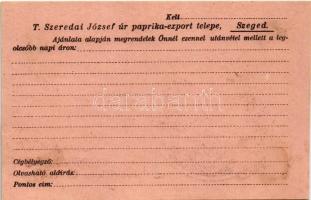 Kelt
T. Szeredai József úr paprika-export telepe, Szeged.
Ajánlata alapján megrendelek Önnél ezennel utánvétel mellett a leg-
olcsóbb napi áron:
Cégbélyegző:
Olvasható aláirás:
Pontos cím: